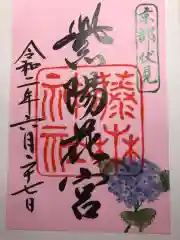 京都 伏見
紫陽花宮
藤森
神社
令和二年六月二十七日